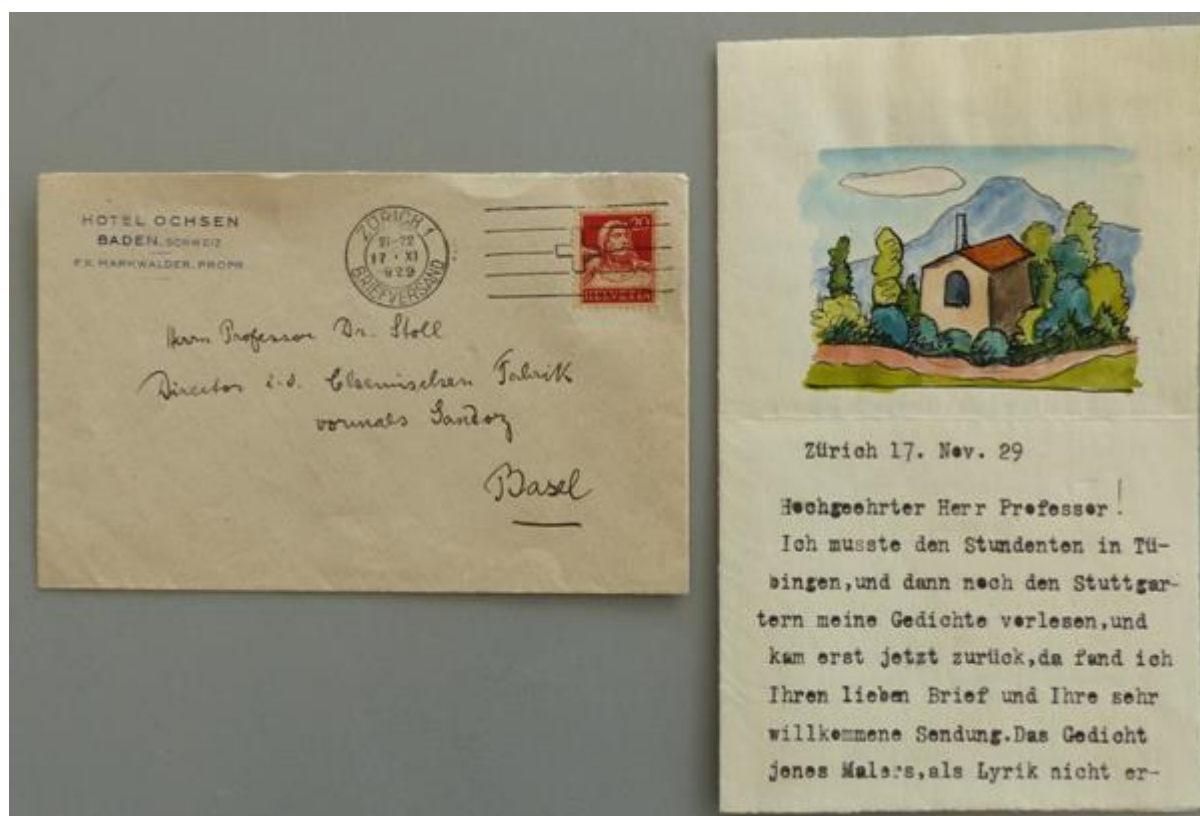 HOTEL OCHSEN
BADEN, SCHWEIZ
F.X. MARKWALDER, PROPR.
ZÜRICH 1
21-22
17 · XI
1929
BRIEFVERSAND
20
HELVETIA
Herrn Professor Dr. Stoll
Director i.d. Chemischen Fabrik
vormals Sandoz
Basel
Zürich 17. Nov. 29
Hochgeehrter Herr Professor!
Ich musste den Stundenten in Tü-
bingen,und dann noch den Stuttgar-
tern meine Gedichte vorlesen,und
kam erst jetzt zurück,da fand ich
Ihren lieben Brief und Ihre sehr
willkommene Sendung.Das Gedicht
jenes Malers,als Lyrik nicht er-